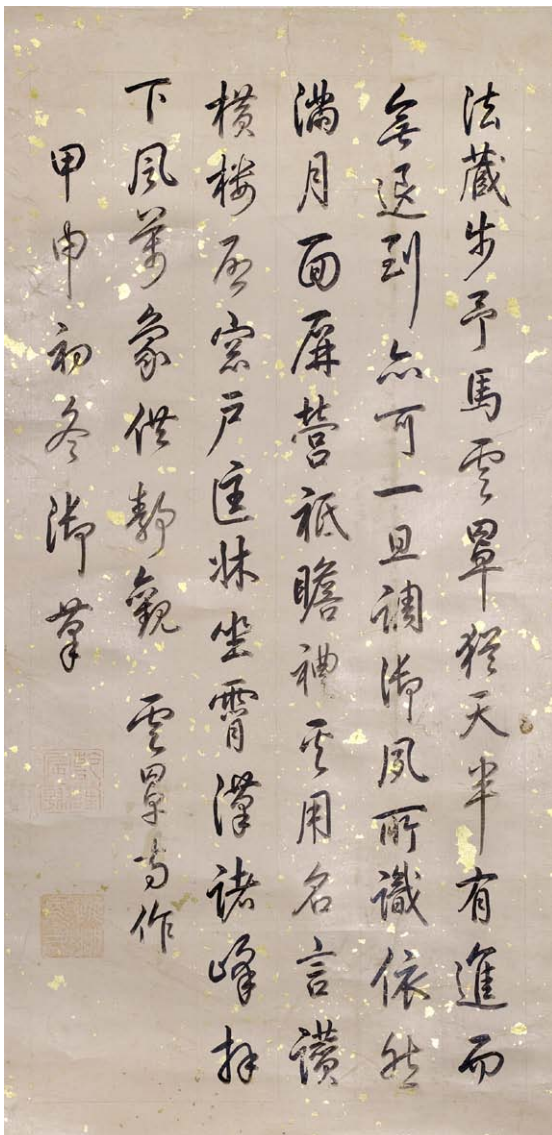 法藏步予馬雲罩猶天半有進而
無退到亦可一旦調御夙所識依然
滿月面屏營祗瞻禮奚用名言讚
橫樓啟窓戶匡牀坐霄漢諸峰拜
下風萬象供靜觀 雲罩寺作
甲申初冬御筆